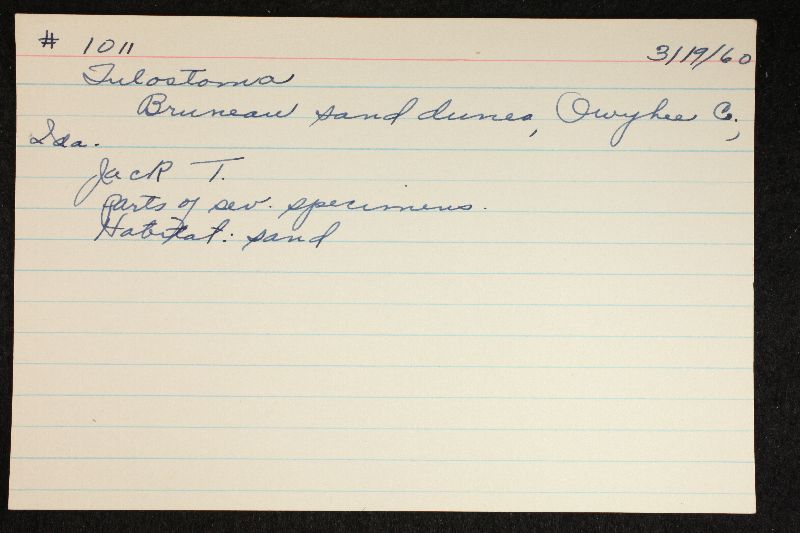 # 1011 3/19/60
Tulostoma
Bruneau sand dunes, Owyhee Co.,
Ida.
Jack T.
parts of sev. specimens.
Habitat: sand